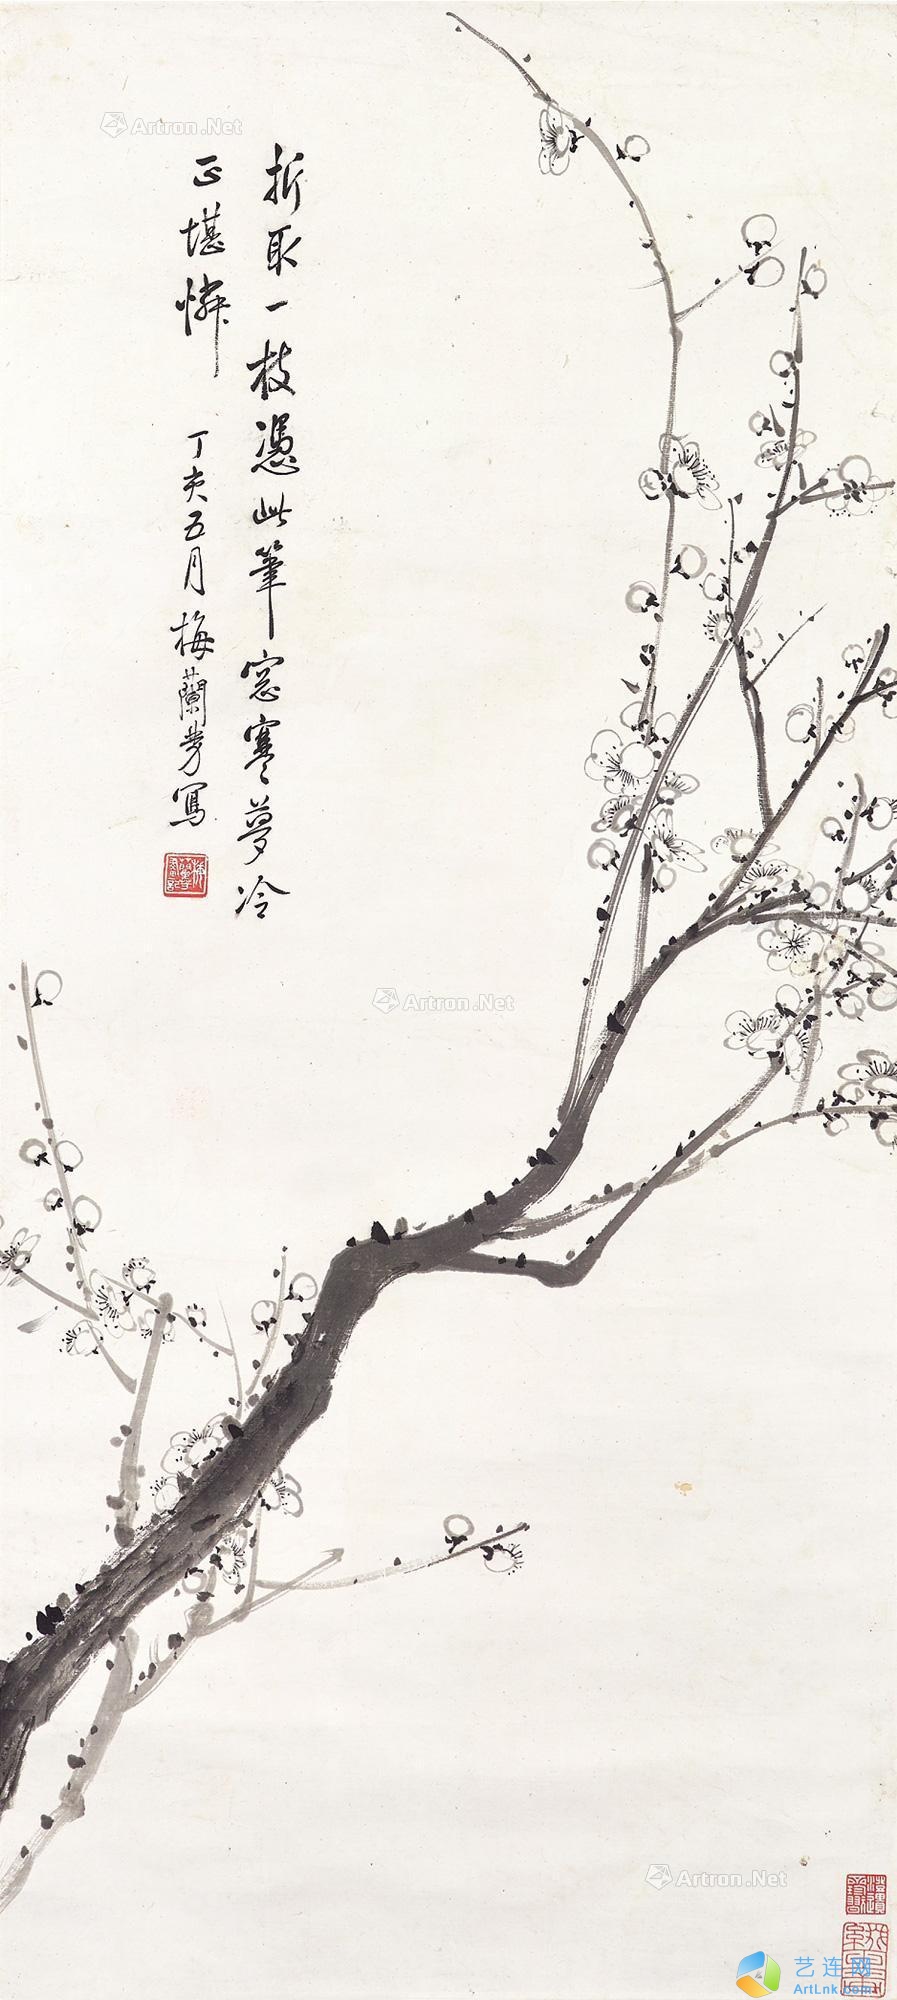 折取一枝憑此筆窓寒夢冷
正堪憐 丁亥五月梅蘭芳寫
Artron.Net
Artron.Net
Artron.Net
艺连网
ArtLnk.com